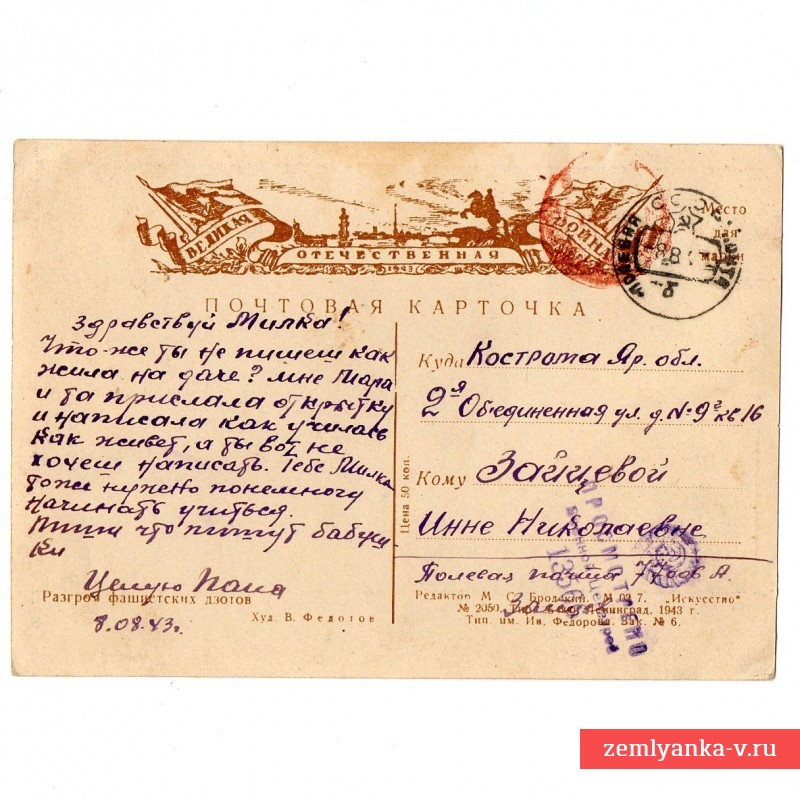 ВЕЛИКАЯ
ОТЕЧЕСТВЕННАЯ
ВОЙНА
1943
Место
для
марки
ПОЧТОВАЯ КАРТОЧКА
Здравствуй Милка!
Что-же ты не пишеш как
жила на даче? Мне Мара
и та прислала открытку
и написала как училась
как живет, а ты вот не
хочеш написать. Тебе Милка
тоже нужно понемногу
начинать учиться.
Пиши что пишут бабуш
ки
Целую Папа
8.08.43г.
Разгром фашистских дзотов
Худ. В. Федотов
Цена 50 коп.
Куда Кострома Яр. обл.
2я Объединенная ул. д. №9г кв 16
Кому Зайцевой
Инне Николаевне
Полевая почта
Зайцев
ПРОСМОТРЕНО
Военной Цензурой
Редактор М. С. Бродский. М "Искусство"
№ 2050. Ленинград. 1943 г.
Тип. им. Ив. Федорова. Зак. № 6.
ПОЛЕВАЯ ПОЧТА
СССР
zemlyanka-v.ru